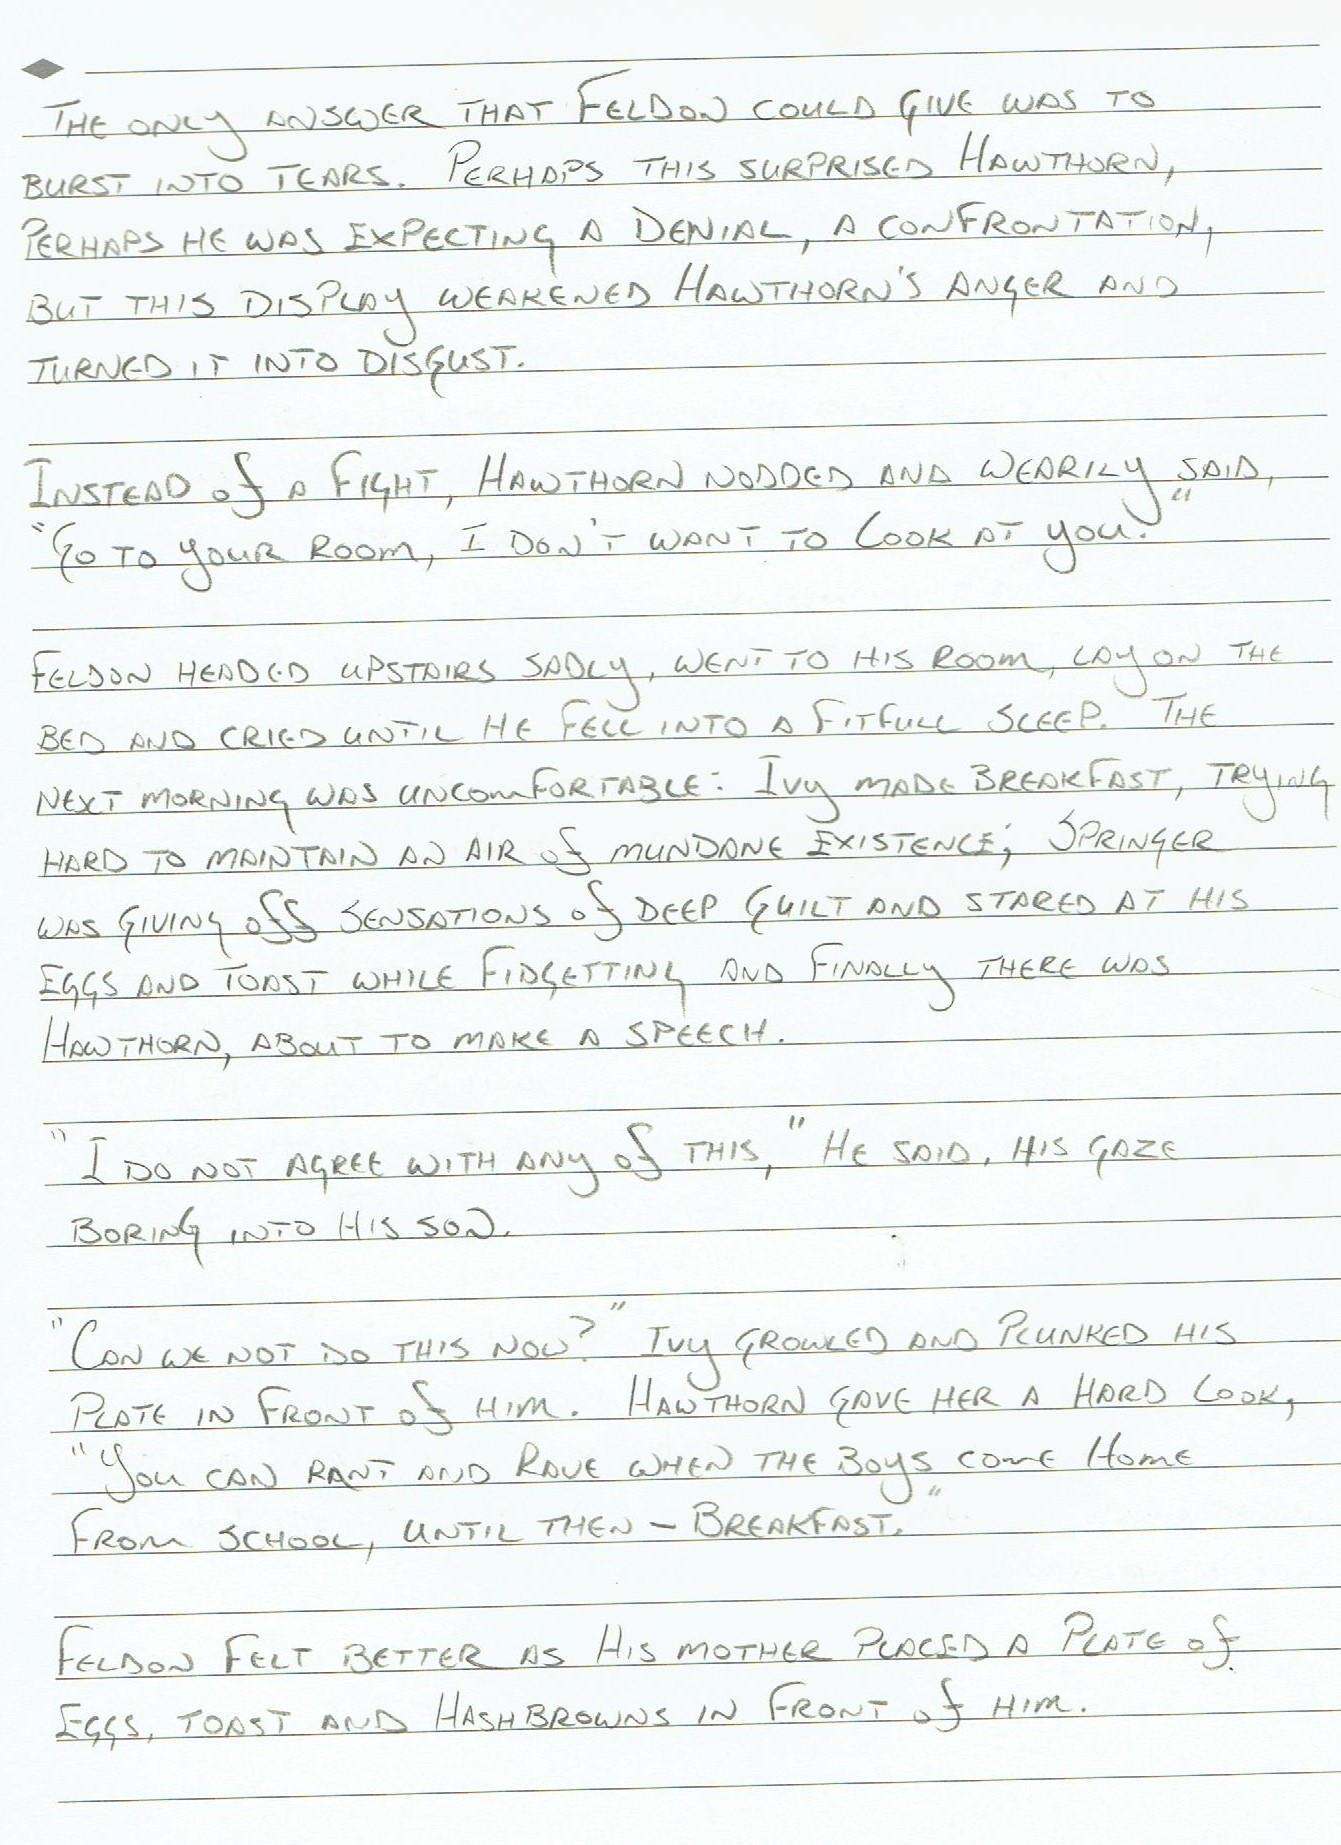 The only answer that Feldon could give was to
burst into tears. Perhaps this surprised Hawthorn,
Perhaps he was expecting a denial, a confrontation,
but this display weakened Hawthorn's anger and
turned it into disgust.
Instead of a fight, Hawthorn nodded and wearily said,
"Go to your room, I don't want to look at you."
Feldon headed upstairs sadly, went to his room, lay on the
bed and cried until he fell into a fitfull sleep. The
next morning was uncomfortable: Ivy made breakfast, trying
hard to maintain an air of mundane existence; Springer
was giving off sensations of deep guilt and stared at his
eggs and toast while fidgetting and finally there was
Hawthorn, about to make a speech.
"I do not agree with any of this," He said, his gaze
boring into his son.
"Can we not do this now?" Ivy growled and plunked his
plate in front of him. Hawthorn gave her a hard look,
"You can rant and rave when the boys come home
from school, until then – Breakfast."
Feldon felt better as his mother placed a plate of
eggs, toast and hashbrowns in front of him.